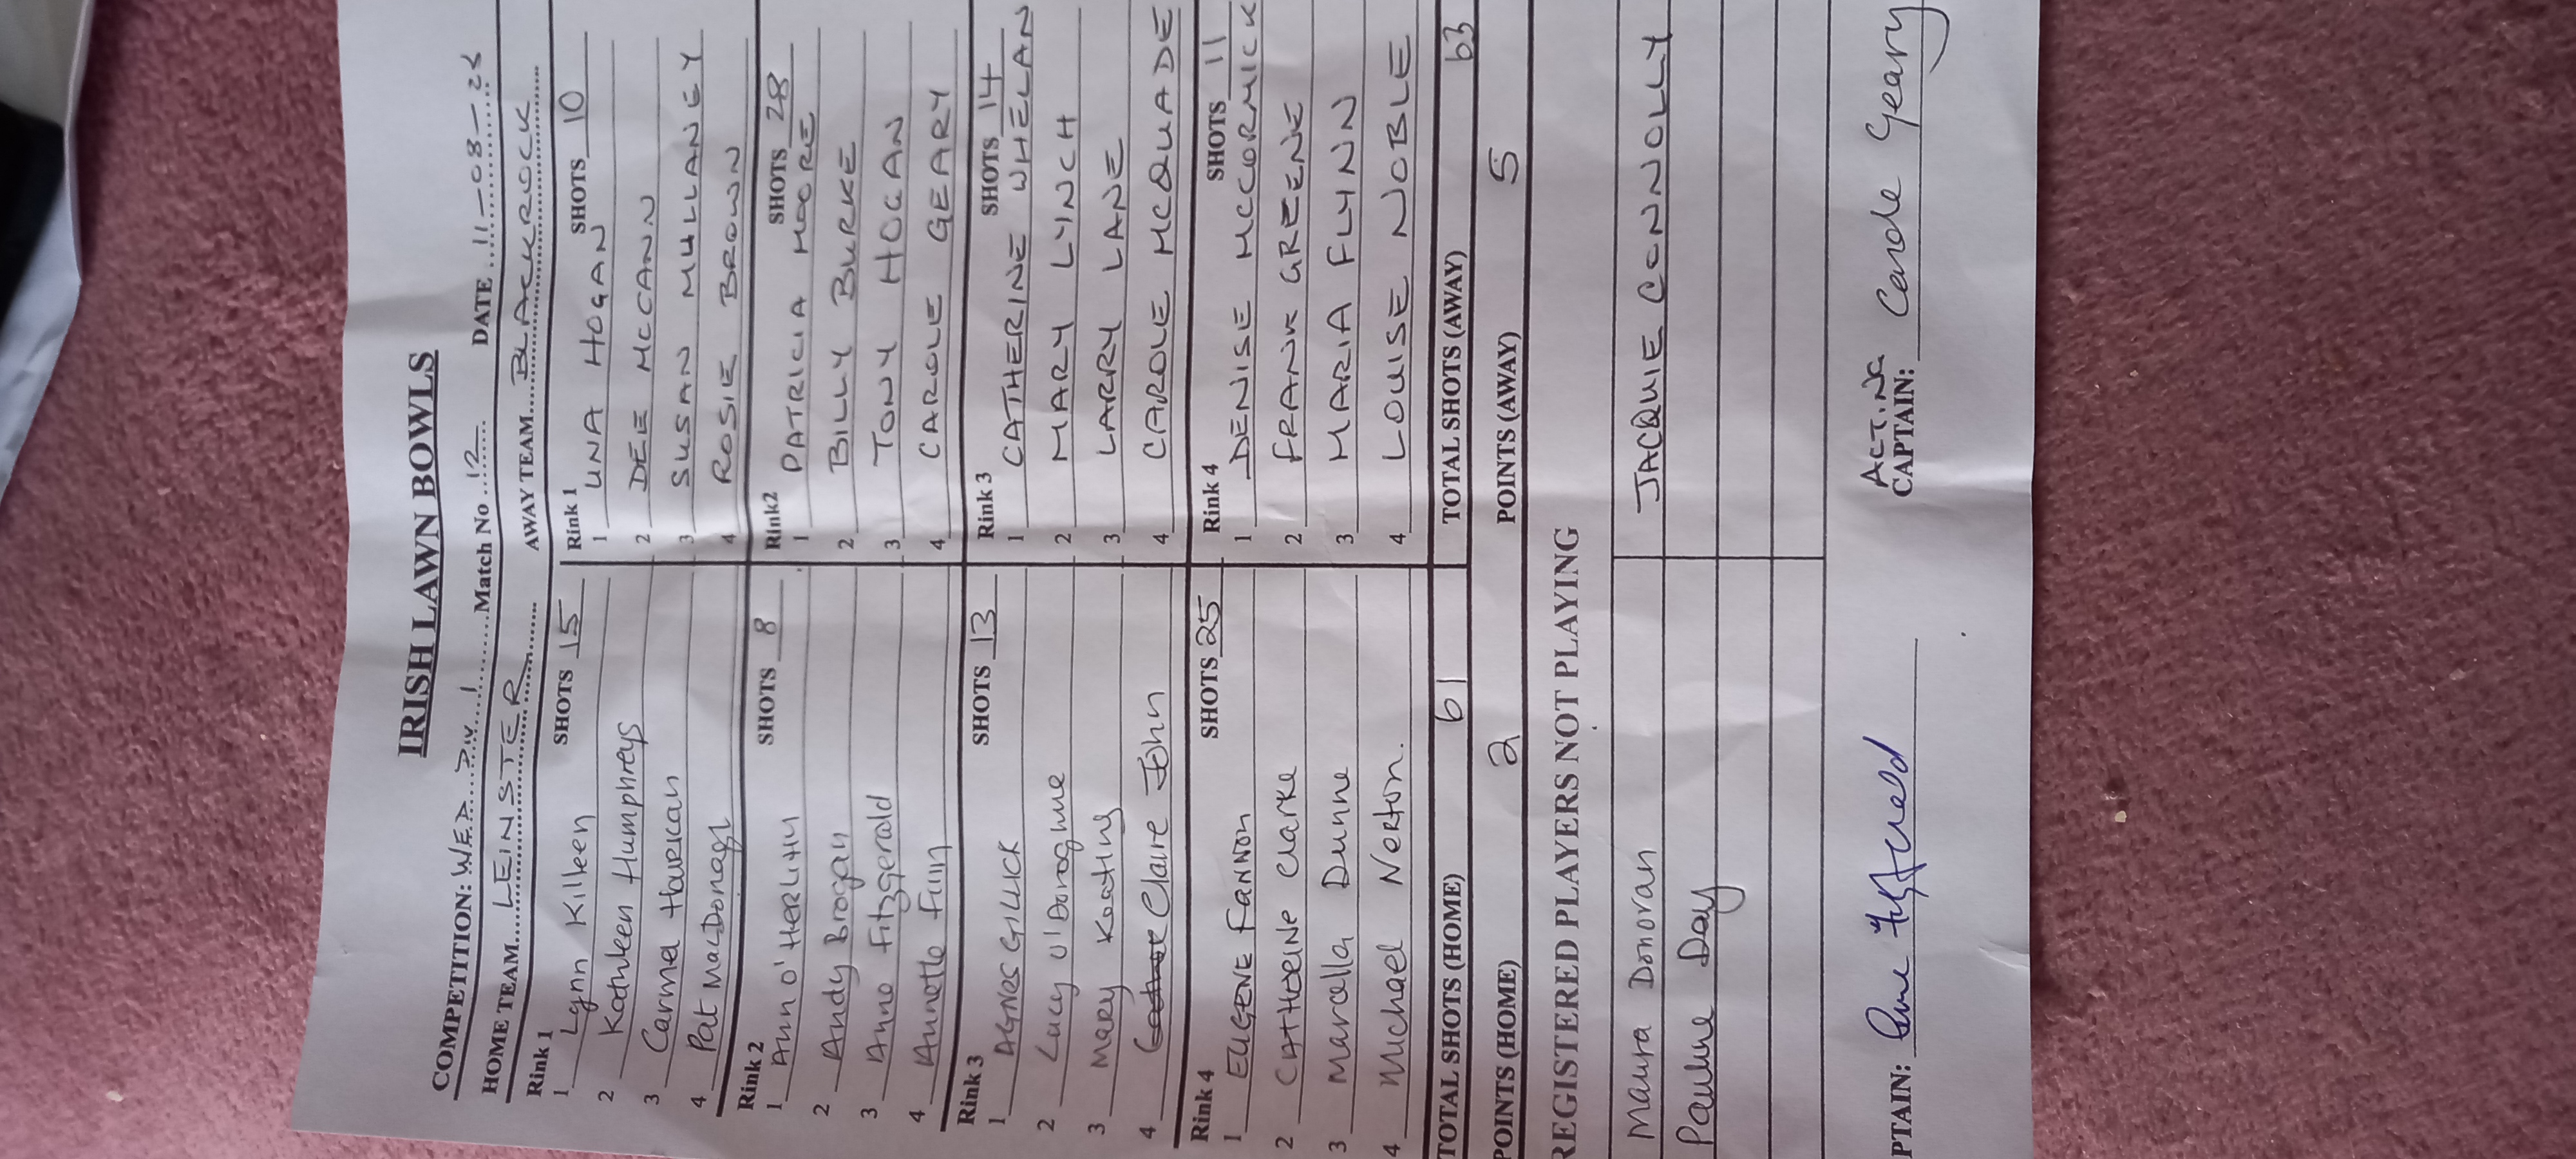 IRISH LAWN BOWLS
COMPETITION: WED DIV 1 Match No 12 DATE 11-08-26
HOME TEAM LEINSTER AWAY TEAM BLACKROCK
Rink 1 SHOTS 15 Rink 1 SHOTS 10
1 Lynn Killeen 1 UNA HOGAN
2 Kathleen Humphreys 2 DEE MCCANN
3 Carmel Hourican 3 SUSAN MULLANEY
4 Pat MacDonagh 4 ROSIE BROWN
Rink 2 SHOTS 8 Rink2 SHOTS 28
1 Ann O'HERLIHY 1 PATRICIA MOORE
2 Andy Brogan 2 BILLY BURKE
3 Anne Fitzgerald 3 TONY HOGAN
4 Annette Finn 4 CAROLE GEARY
Rink 3 SHOTS 13 Rink 3 SHOTS 14
1 AGNES GILLICK 1 CATHERINE WHELAN
2 Lucy 2 MARY LYNCH
3 Mary Keating 3 LARRY LANE
4 Claire John 4 CAROLE MCQUADE
Rink 4 SHOTS 25 Rink 4 SHOTS 11
1 EUGENE FANNON 1 DENISE MCCORMICK
2 CATHERINE Clarke 2 FRANK GREENE
3 Marcella Dunne 3 MARIA FLYNN
4 Michael Nerton. 4 LOUISE NOBLE
TOTAL SHOTS (HOME) 61 TOTAL SHOTS (AWAY) 63
POINTS (HOME) 2 POINTS (AWAY) 5
REGISTERED PLAYERS NOT PLAYING
Maura Donovan JACQUIE CONNOLLY
Pauline Day
ACTING
PTAIN: CAPTAIN: Carole Geary